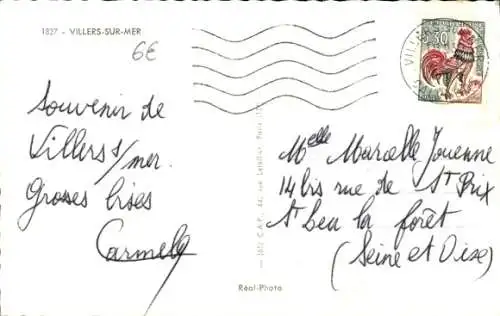 1827 - VILLERS-SUR-MER
6€
Souvenir de
Villers s/mer.
Grosses bises
Carmela
0,30
Melle Marcelle Jouenne
14 bis rue de St Prix
St Leu la forêt
(Seine et Oise)
Réal-Photo